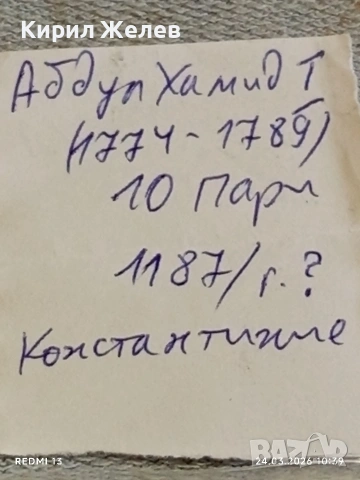 Кирил Желев
Абдул Хамид I
(1774-1789)
10 Пари
1187/г.?
Константине
REDMI 13
24.03.2026 10:39
BAZAR